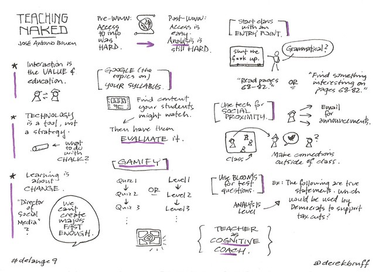 TEACHING
NAKED
José Antonio Bowen
* Interaction is
the VALUE of
education.
* TECHNOLOGY
is a tool, not
a strategy.
what
to do
with
CHALK?
* Learning is
about
CHANGE.
"Director
of Social
Media"
?
We
can't
create
majors
FAST
ENOUGH.
@delange9
Pre-WWW:
Access
to info
was
HARD.
Post-WWW:
Access is
easy.
Analysis is
still HARD.
GOOGLE the
topics on
your SYLLABUS.
Find content
your students
might watch.
Then have them
EVALUATE it.
GAMIFY
Quiz 1
Quiz 2
Quiz 3
OR
Level 1
Level 2
Level 3
Start class
with an
ENTRY POINT.
Shut the
f*ck up.
Grammatical?
"Read pages
68-82."
OR
"Find something
interesting on
pages 68-82."
Use tech for
SOCIAL
PROXIMITY.
Email
for
announcements.
Class
Make connections
outside of class.
Use BLOOM'S
for test
questions.
ANALYSIS
Level
Ex: The following are true
statements. Which
would be used by
Democrats to support
tax cuts?
TEACHER
as
COGNITIVE
COACH.
@derekbruff